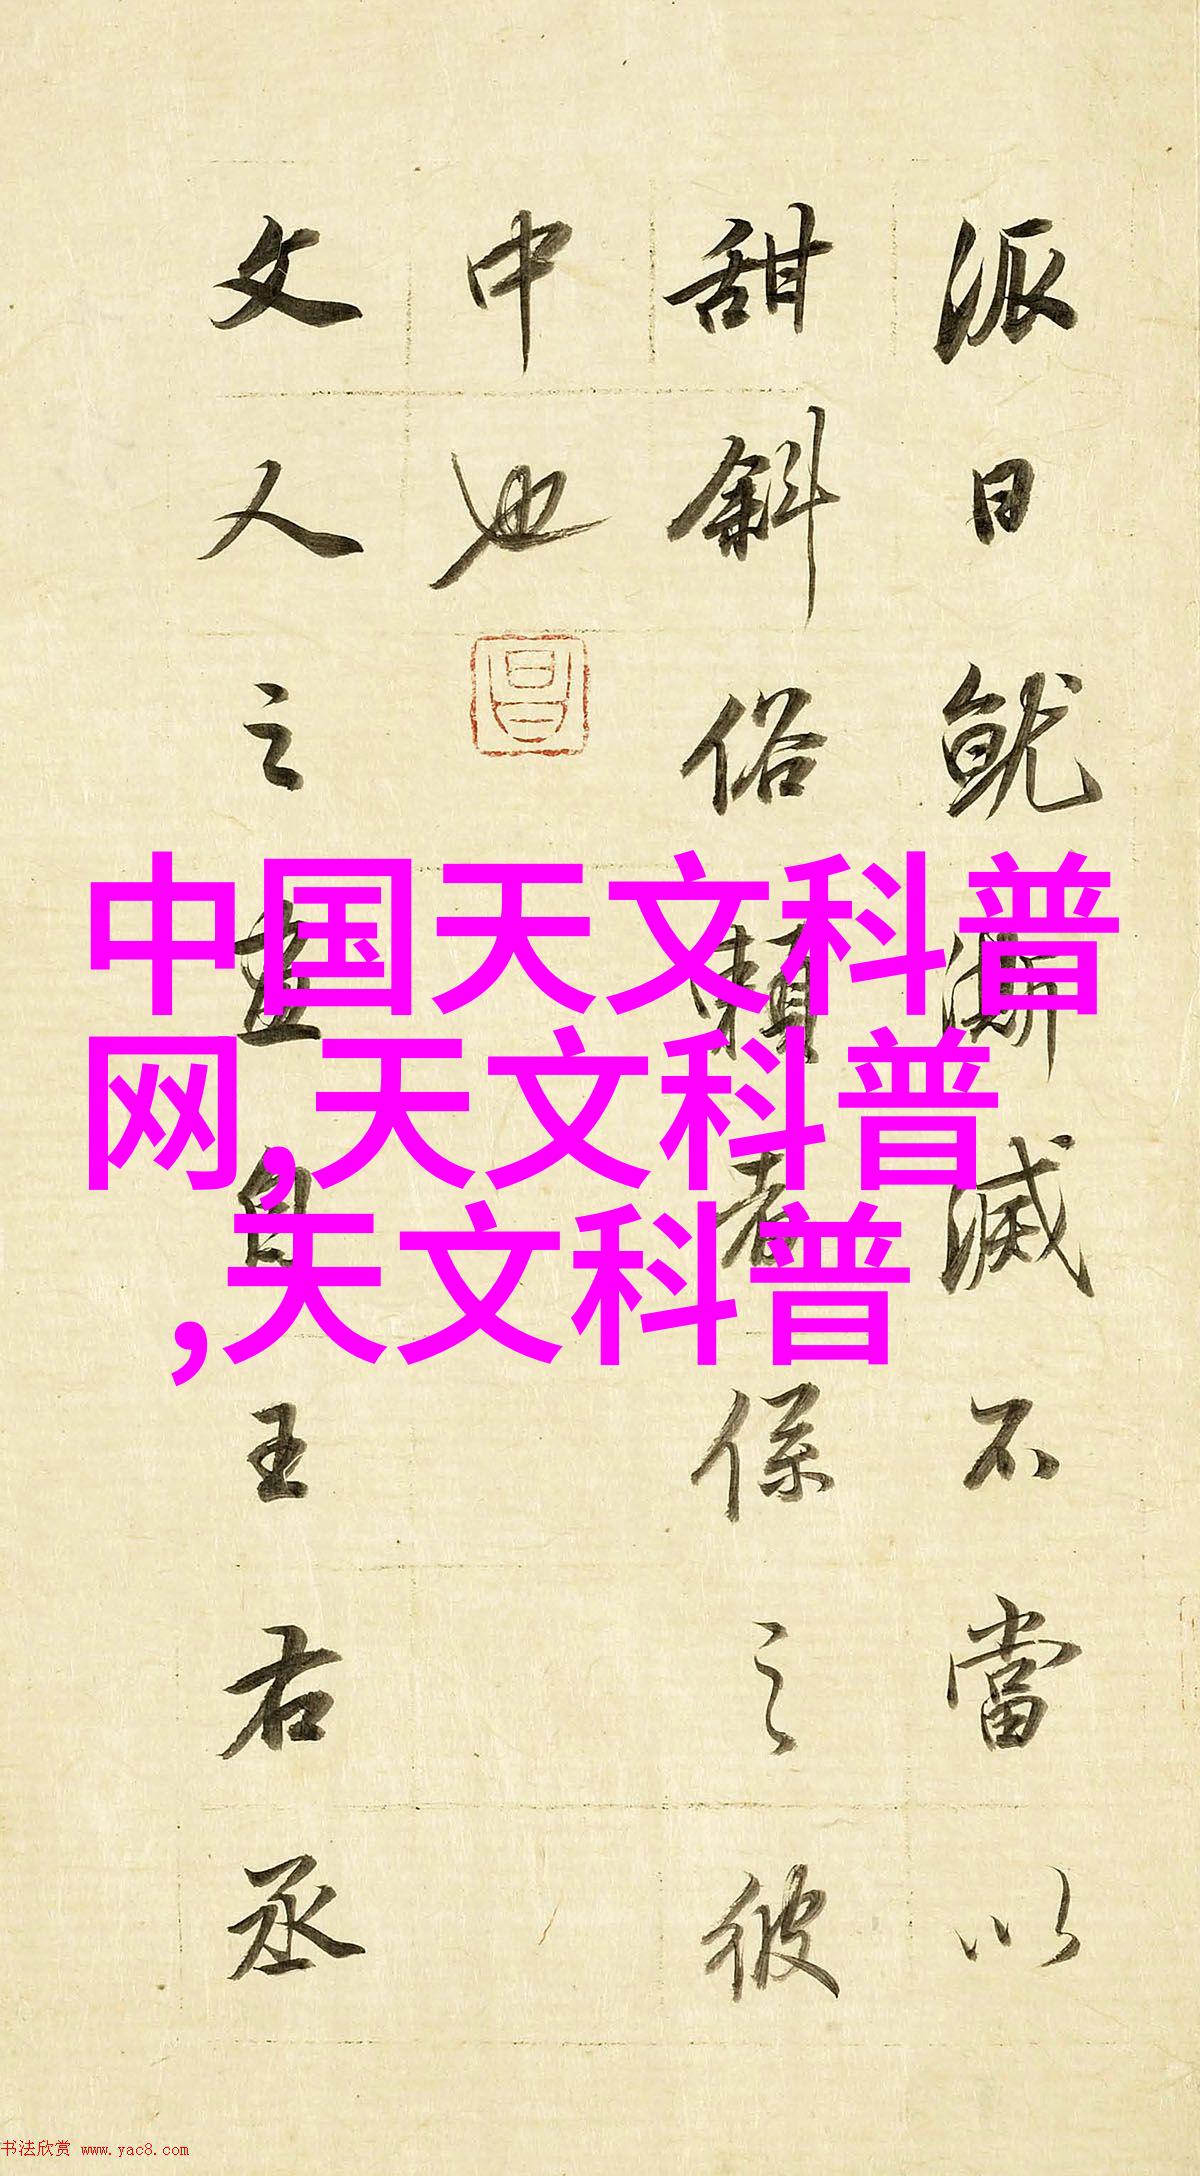 派日就澌滅不當以
甜斜俗賴者係之彼
中也
昌
文人之畫自王右丞
中国天文科普
网,天文科普
,天文科普
书法欣赏 www.yac8.com